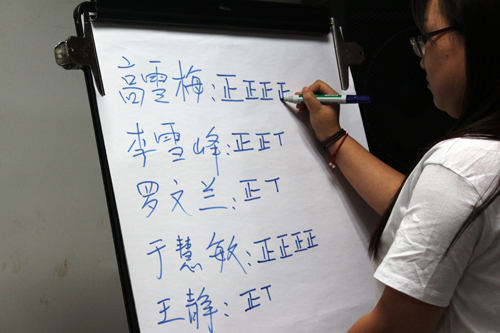 高雪梅:正正正正
李雪峰:正正丅
罗文兰:正丅
于慧敏:正正正正
王静:正丅